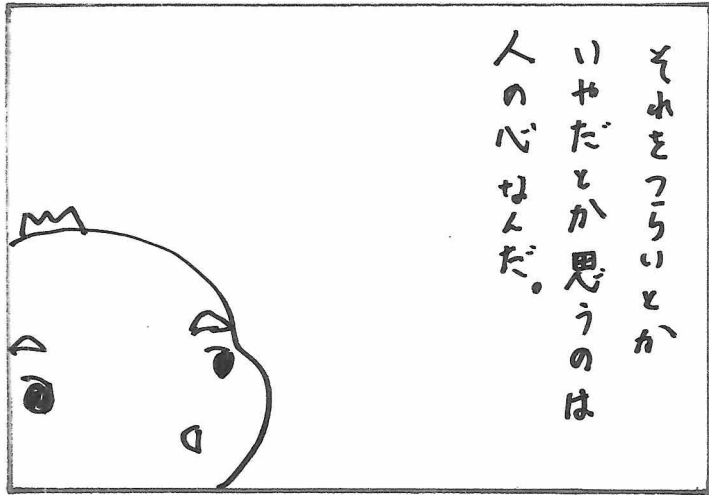 それをつらいとか
いやだとか思うのは
人の心なんだ。